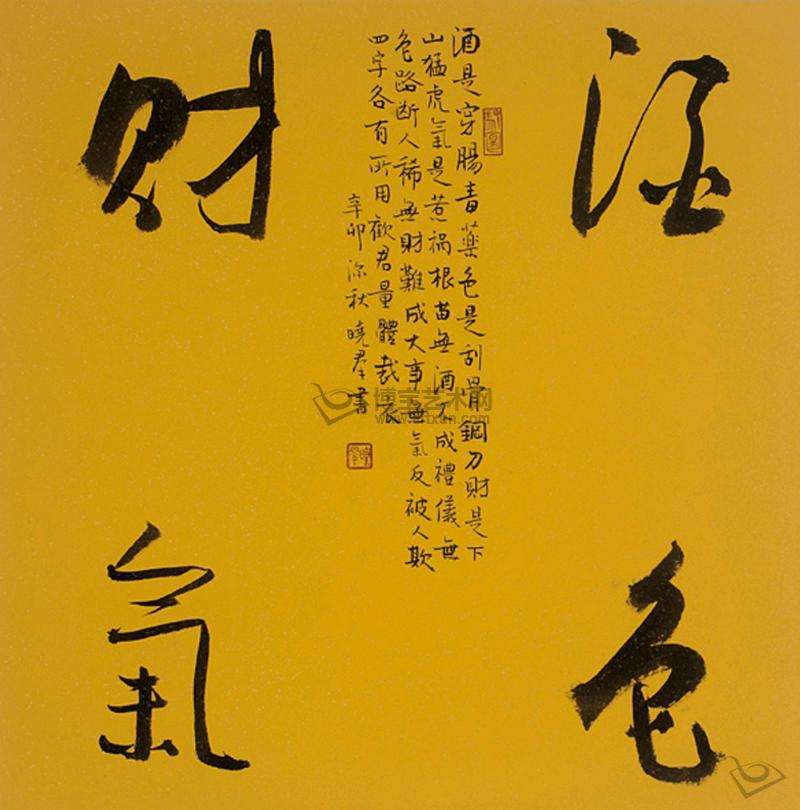 酒色
酒是穿腸毒藥色是刮骨鋼刀財是下
山猛虎氣是惹禍根苗無酒不成禮儀無
色路斷人稀無財難成大事無氣反被人欺
四字各有所用勸君量體裁衣
辛卯深秋曉群書
財氣
博宝艺术网